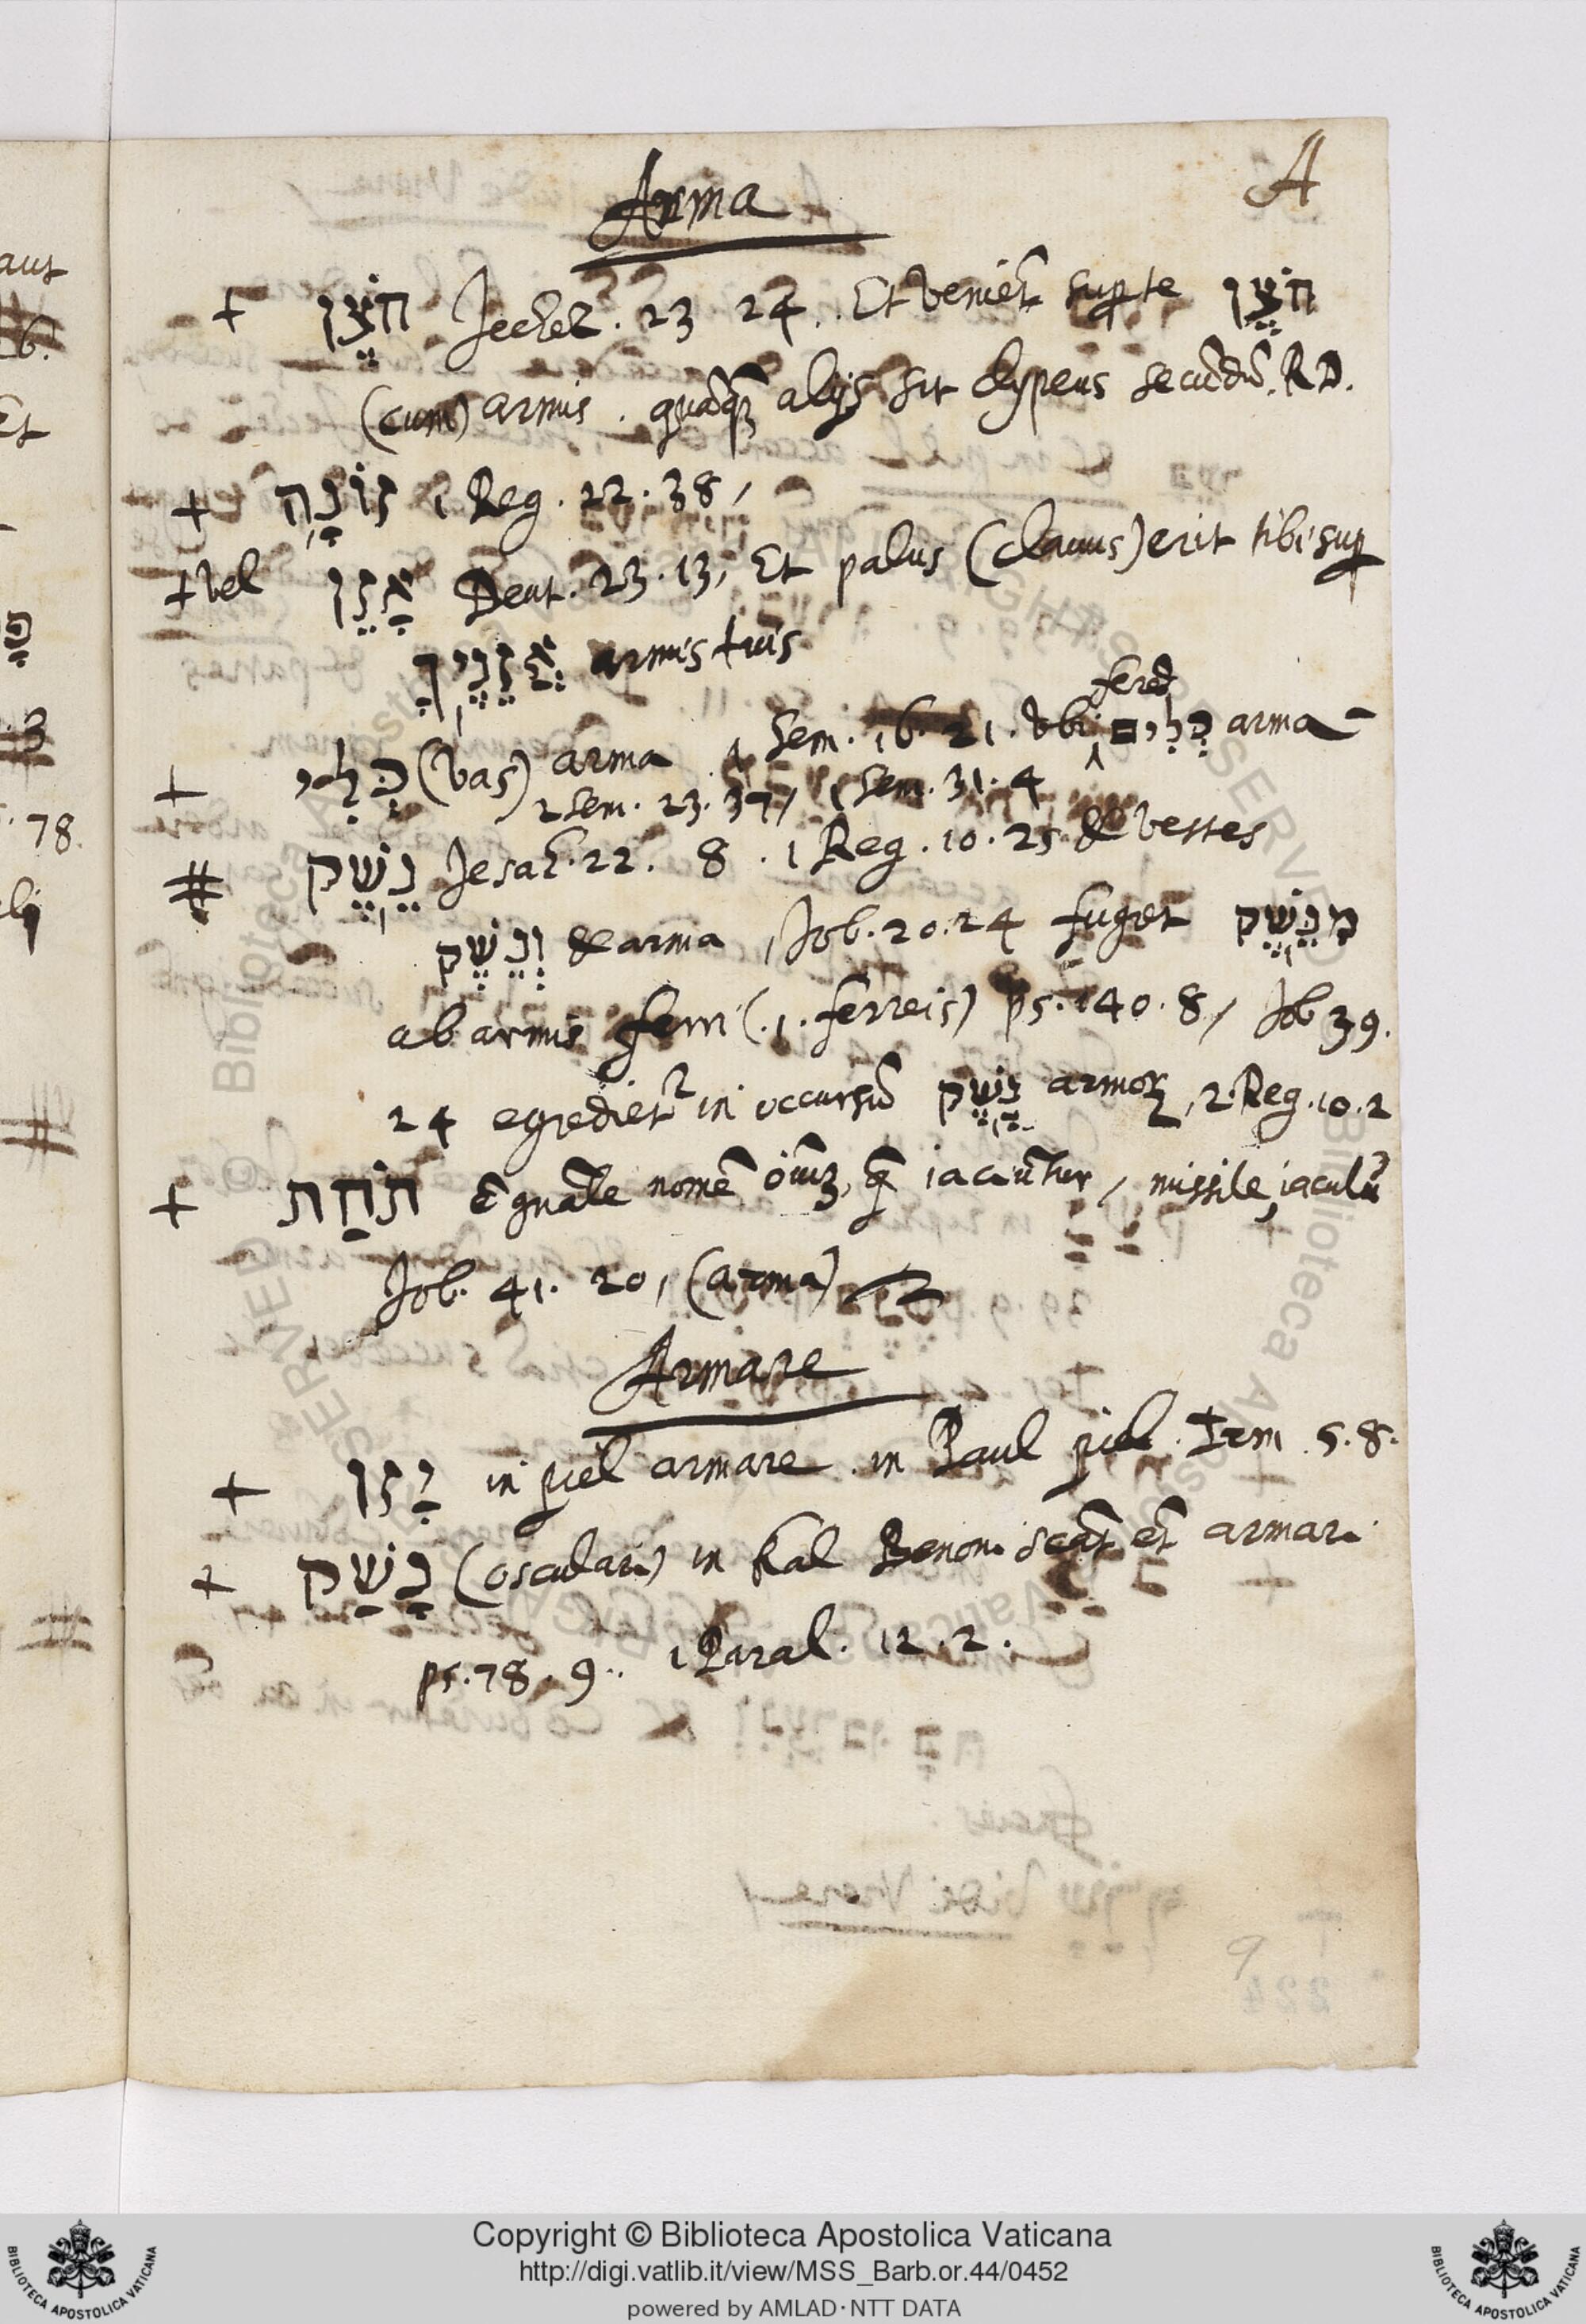 A
Arma
+ חֹצֶן Jechez. 23 24. Et venient̃ suꝑ te חֹצֶן
(cum) armis. quãqꝫ alijs sit clypeus secũdũ. RD.
+ זוֹנָה 1 Reg. 22. 38,
+ vel אָזֵן Deut. 23. 13, Et palus (clauus) erit tibi suꝑ
אֲזֵנֶיךָ armis tuis
fered
+ כְּלִי (vas) arma 1 Sem. 16. 21. vbi כֵּלִים arma
2 Sem. 23. 37, 1 Sem. 31. 4
# נֵשֶׁק Jesa. 22. 8. 1 Reg. 10. 25 & vestes
וְנֵשֶׁק & arma, Job. 20. 24 fuget מִנֵּשֶׁק
ab armis ferri (.1. ferreis) ps. 140. 8, Job 39.
24 egrediet᷑ in occursũ נָשֶׁק armoꝝ, 2. Reg. 10. 2
+ תֹתַח ẽ gnãle nomẽ õiuꝫ, q̃ iaciũtur, missile, iaculũ
Job. 41. 20, (arma)
Armare
+ זָיַן in piel armare. in Paul piel. Irm 5. 8.
+ נָשַׁק (osculari) in Kal Benoni scãt et̃ armari
ps. 78. 9.. 1 Paral. 12. 2.
9
aut
6.
Et
3
78.
Copyright © Biblioteca Apostolica Vaticana
http://digi.vatlib.it/view/MSS_Barb.or.44/0452
powered by AMLAD·NTT DATA
BIBLIOTECA APOSTOLICA VATICANA
BIBLIOTECA APOSTOLICA VATICANA